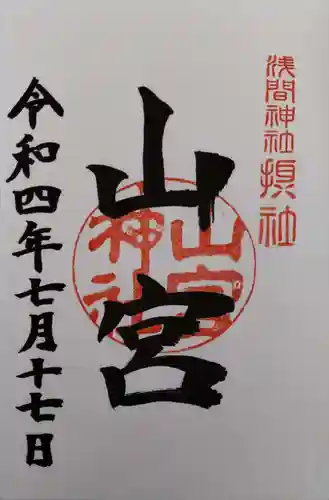 浅間神社摂社
山宮
山宮
神社
令和四年七月十七日